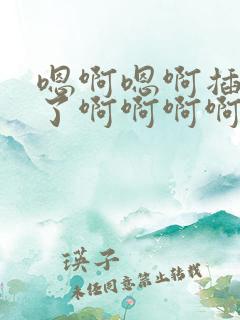 嗯啊嗯啊插
了啊啊啊啊
瑛子
未经同意禁止转载